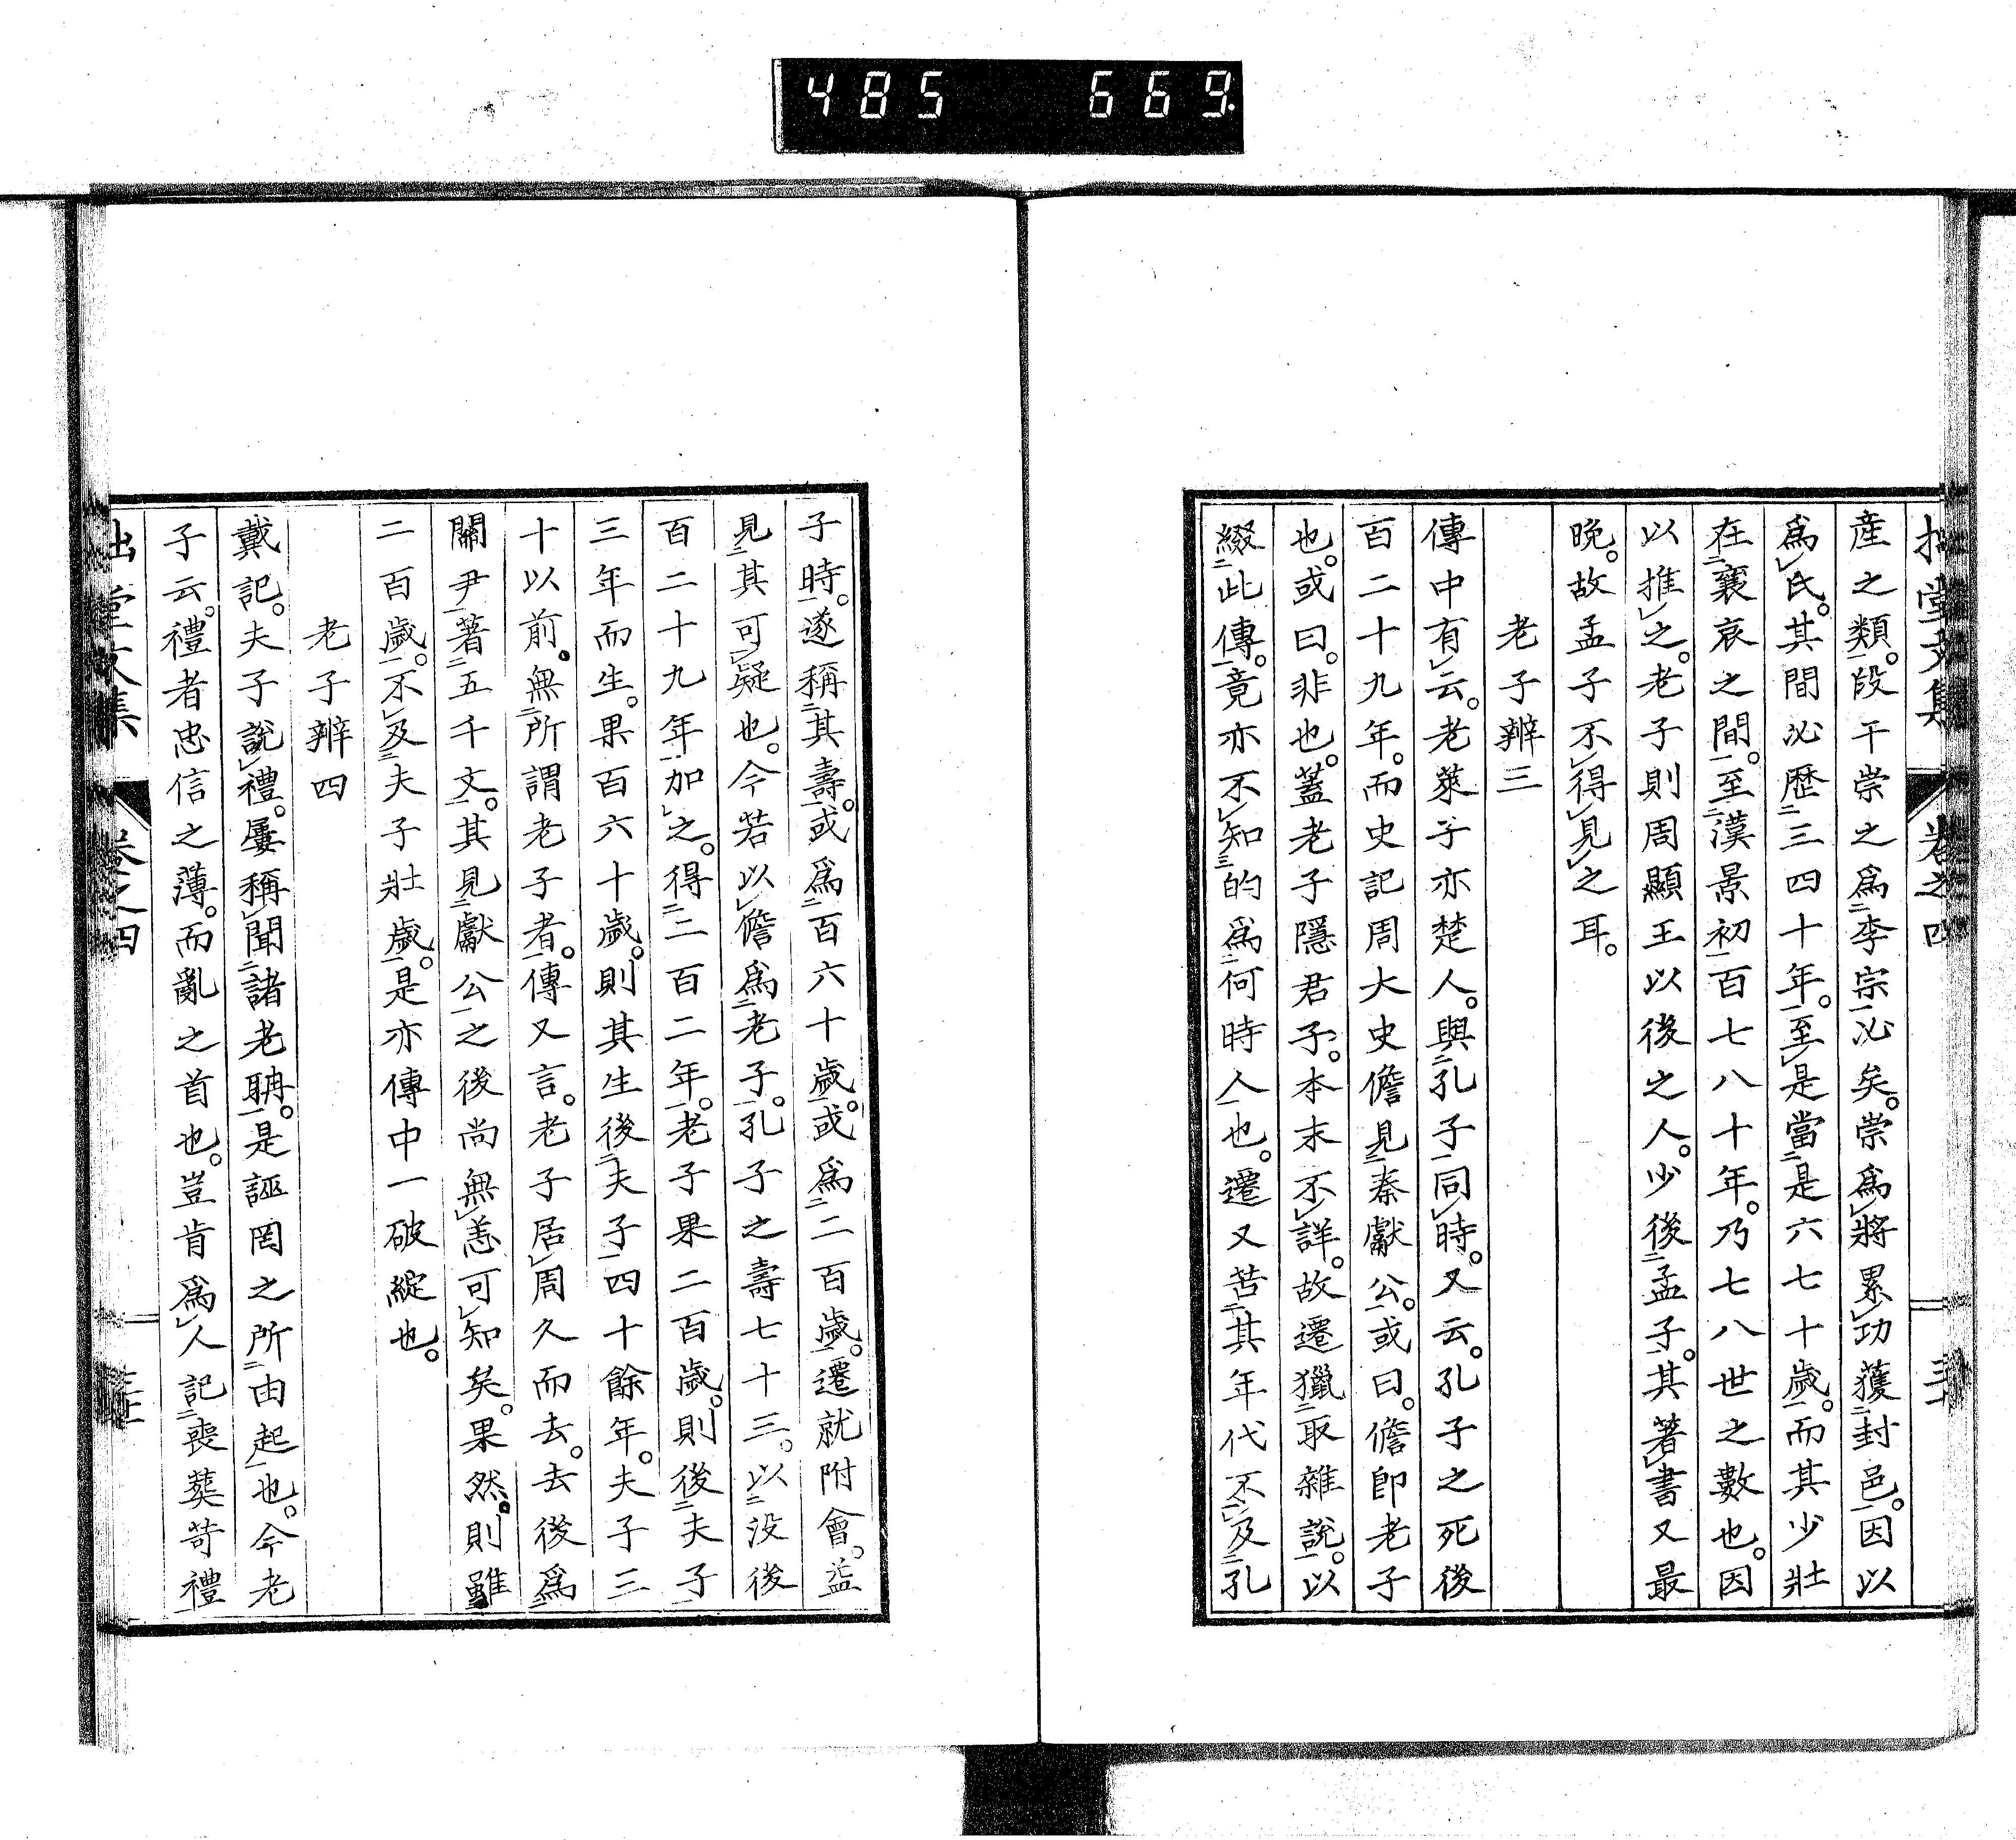 485 669
拙堂文集 卷之四
産之類。段干崇之爲李宗必矣。崇爲將累功獲封邑。因以
爲氏。其間必歷三四十年。至是當是六七十歲。而其少壯
在襄哀之間。至漢景初百七八十年。乃七八世之數也。因
以推之。老子則周顯王以後之人。少後孟子。其著書又最
晩。故孟子不得見之耳。
老子辨三
傳中有云。老萊子亦楚人。與孔子同時。又云。孔子之死後
百二十九年。而史記周大史儋見秦獻公。或曰。儋卽老子
也。或曰。非也。蓋老子隱君子。本末不詳。故遷獵取雜說。以
綴此傳。竟亦不知的爲何時人也。遷又苦其年代不及孔
子時。遂稱其壽。或爲百六十歲。或爲二百歲。遷就附會。益
見其可疑也。今若以儋爲老子。孔子之壽七十三。以沒後
百二十九年加之。得二百二年。老子果二百歲。則後夫子
三年而生。果百六十歲。則其生後夫子四十餘年。夫子三
十以前。無所謂老子者。傳又言。老子居周久而去。去後爲
關尹著五千文。其見獻公之後尚無恙可知矣。果然。則雖
二百歲。不及夫子壯歲。是亦傳中一破綻也。
老子辨四
戴記。夫子說禮。屢稱聞諸老聃。是誣罔之所由起也。今老
子云。禮者忠信之薄。而亂之首也。豈肯爲人記喪葬苛禮
拙堂文集 卷之四